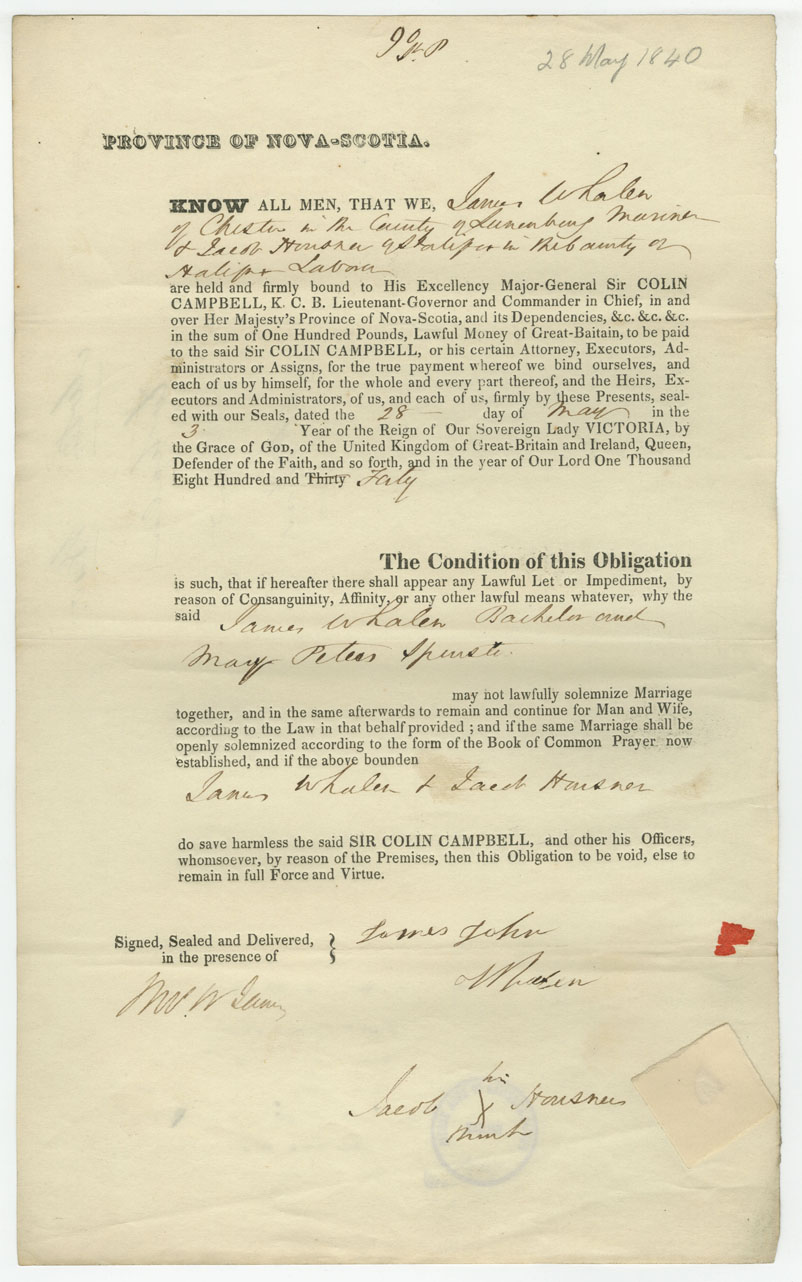 28 May 1840
PROVINCE OF NOVA-SCOTIA.
KNOW ALL MEN, THAT WE, James Whalen
of Chester in the County of Lunenburg Mariner
& Jacob Housner of Halifax in the County of
Halifax Labourer
are held and firmly bound to His Excellency Major-General Sir COLIN
CAMPBELL, K. C. B. Lieutenant-Governor and Commander in Chief, in and
over Her Majesty's Province of Nova-Scotia, and its Dependencies, &c. &c. &c.
in the sum of One Hundred Pounds, Lawful Money of Great-Baitain, to be paid
to the said Sir COLIN CAMPBELL, or his certain Attorney, Executors, Ad-
ministrators or Assigns, for the true payment whereof we bind ourselves, and
each of us by himself, for the whole and every part thereof, and the Heirs, Ex-
ecutors and Administrators, of us, and each of us, firmly by these Presents, seal-
ed with our Seals, dated the 28 day of May in the
3 Year of the Reign of Our Sovereign Lady VICTORIA, by
the Grace of GOD, of the United Kingdom of Great-Britain and Ireland, Queen,
Defender of the Faith, and so forth, and in the year of Our Lord One Thousand
Eight Hundred and Thirty Forty
The Condition of this Obligation
is such, that if hereafter there shall appear any Lawful Let or Impediment, by
reason of Consanguinity, Affinity, or any other lawful means whatever, why the
said James Whalen Bachelor and
Mary Peters Spinster
may not lawfully solemnize Marriage
together, and in the same afterwards to remain and continue for Man and Wife,
according to the Law in that behalf provided ; and if the same Marriage shall be
openly solemnized according to the form of the Book of Common Prayer now
established, and if the above bounden
James Whalen & Jacob Housner
do save harmless the said SIR COLIN CAMPBELL, and other his Officers,
whomsoever, by reason of the Premises, then this Obligation to be void, else to
remain in full Force and Virtue.
Signed, Sealed and Delivered,
in the presence of
James John
Whalen
his
Jacob X Housner
mark